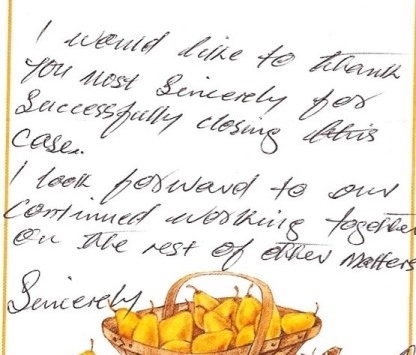 I would like to thank
you most Sincerely for
Successfully closing this
case.
I look forward to our
continued working together
on the rest of other matters
Sincerely